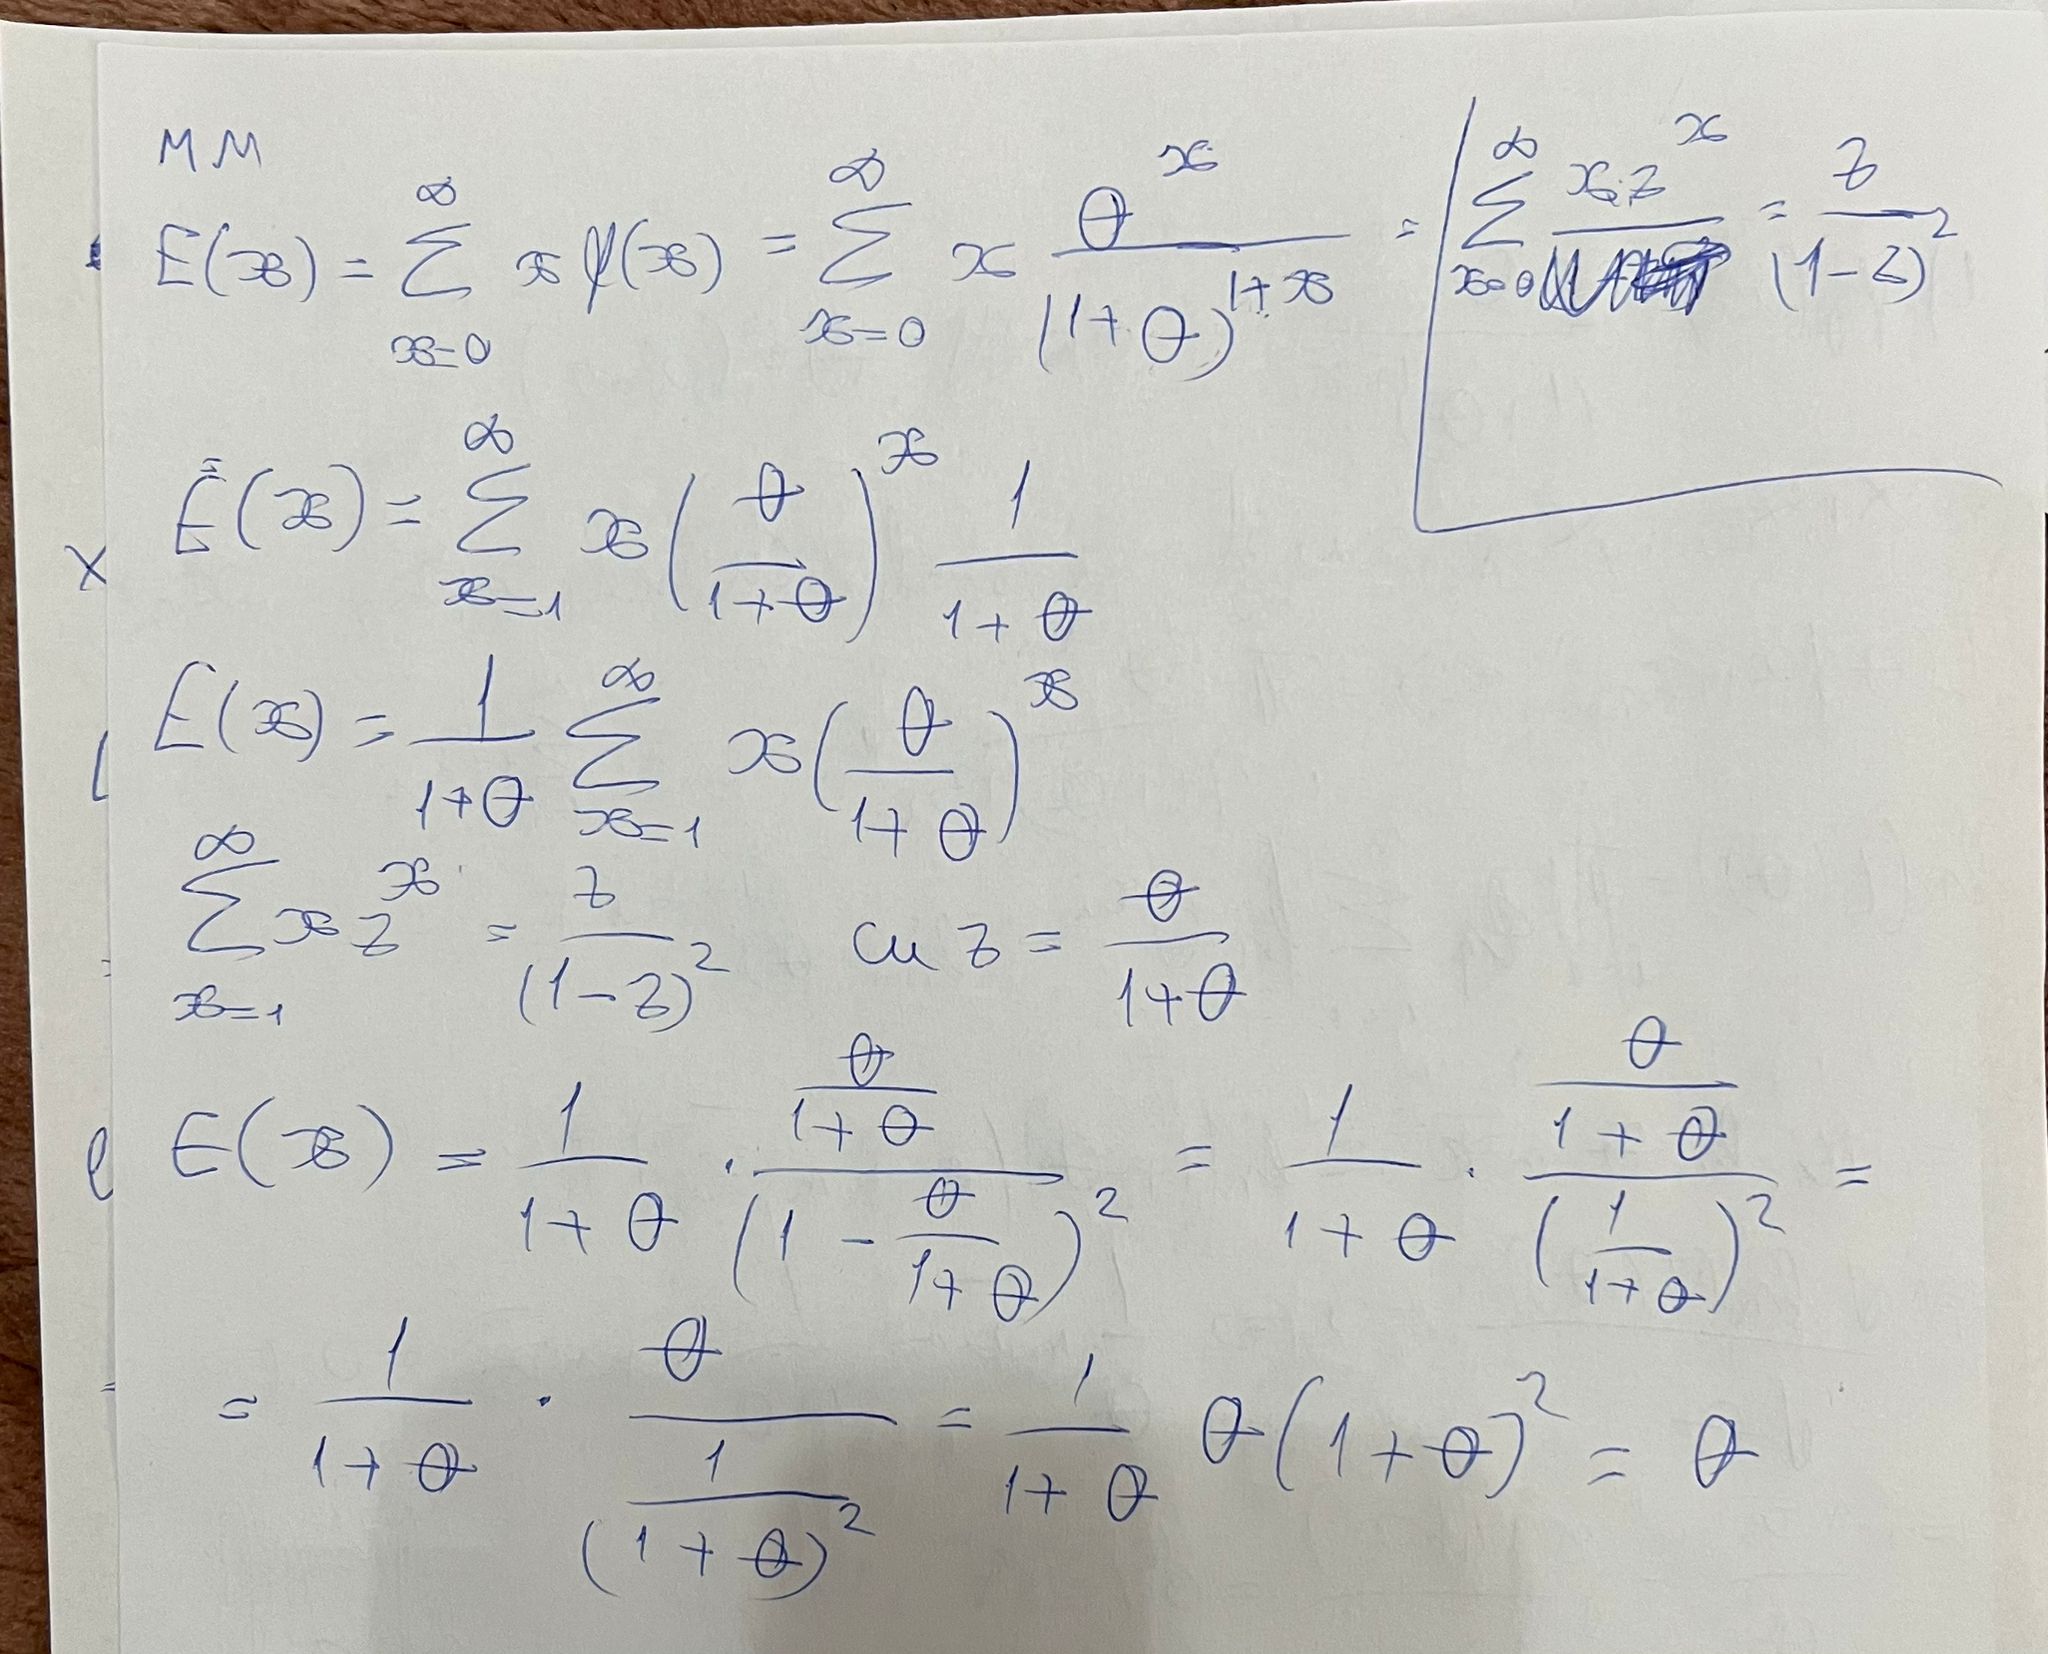 MM
E(x) = ∑_{x=0}^{∞} x f(x) = ∑_{x=0}^{∞} x θ^x / (1+θ)^{1+x} =
∑_{x=0}^{∞} x z^x = z / (1-z)^2
E(x) = ∑_{x=1}^{∞} x (θ / (1+θ))^x 1 / (1+θ)
E(x) = 1 / (1+θ) ∑_{x=1}^{∞} x (θ / (1+θ))^x
∑_{x=1}^{∞} x z^x = z / (1-z)^2 cu z = θ / (1+θ)
E(x) = 1 / (1+θ) · (θ / (1+θ)) / (1 - θ / (1+θ))^2 = 1 / (1+θ) · (θ / (1+θ)) / (1 / (1+θ))^2 =
= 1 / (1+θ) · θ / (1 / (1+θ)^2) = 1 / (1+θ) θ(1+θ)^2 = θ